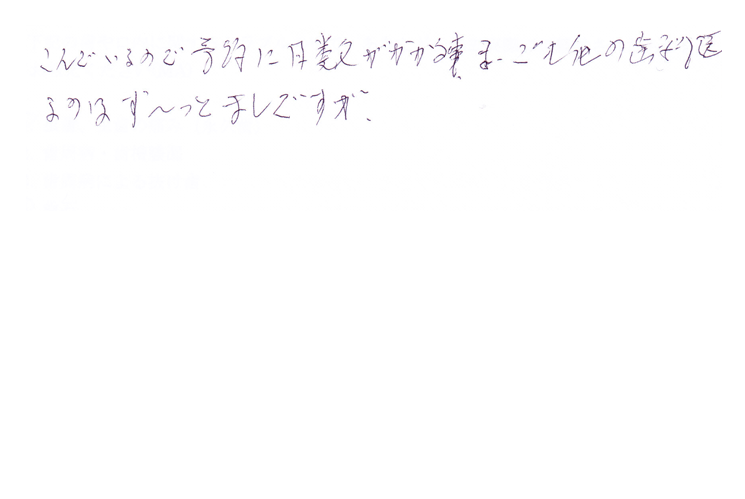 こんでいるので 予約に日数がかかる事。でも他の歯科医
よりはず〜っとましですが、